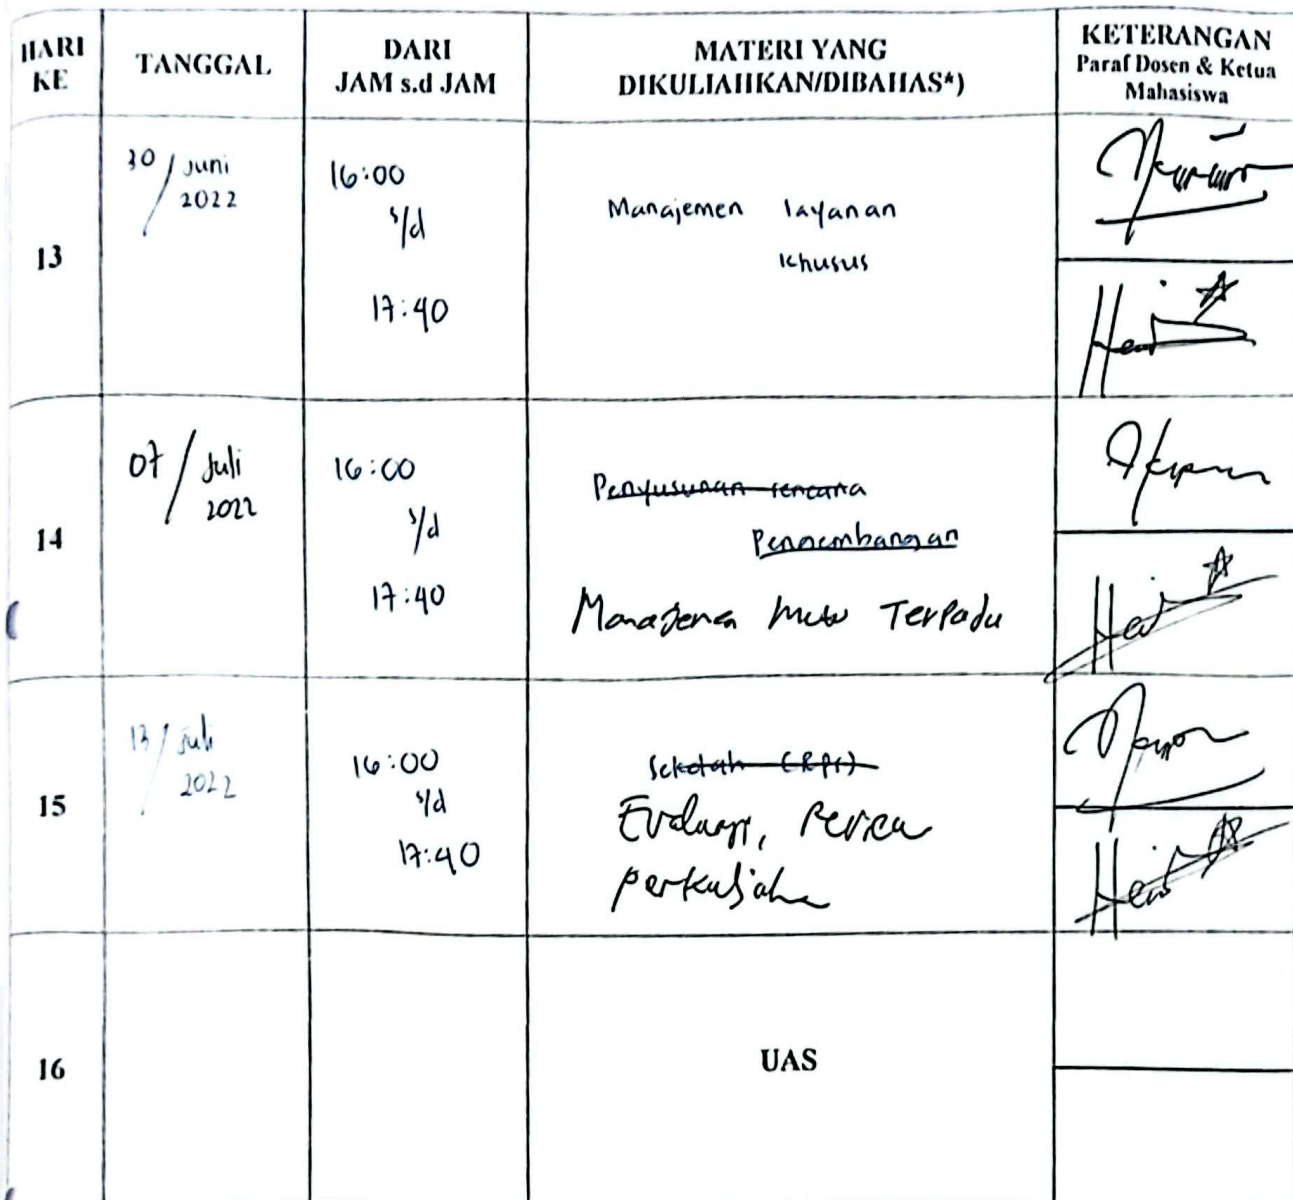 HARI KE
TANGGAL
DARI
JAM s.d JAM
MATERI YANG
DIKULIAHKAN/DIBAHAS*)
KETERANGAN
Paraf Dosen & Ketua
Mahasiswa
13
30 / Juni
2022
16:00
s/d
17:40
Manajemen layanan
khusus
14
07 / Juli
2022
16:00
s/d
17:40
Penyusunan rencana
Pengembangan
Manajemen Mutu Terpadu
15
13 / Juli
2022
16:00
s/d
17:40
Sekolah (RPS)
Evaluasi,
perkuliahan
16
UAS